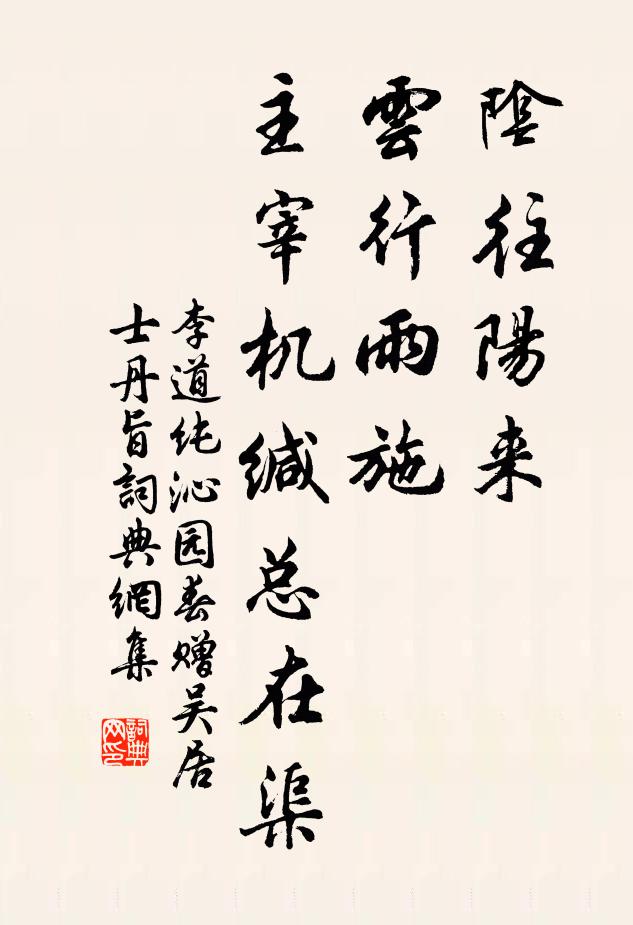 陰往陽来
雲行雨施
主宰机缄总在渠
李道纯沁园春赠吴居
士丹旨詞典網集
詞典網印